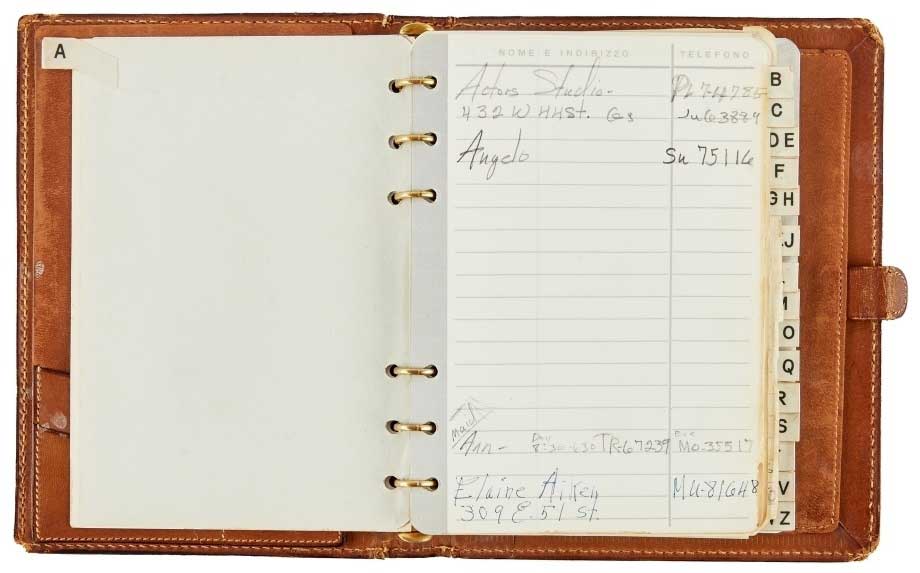 A
NOME E INDIRIZZO TELEFONO
Actors Studio- PL 7-4785
432 W 44St. Ju63889
Angelo Su 75116
Maid
Ann- Day 8:30-630 TR-67239 Eve MO-35517
Elaine Aiken MU-81648
309 E. 51 St.
B
C
DE
F
GH
J
M
O
Q
R
S
V
Z